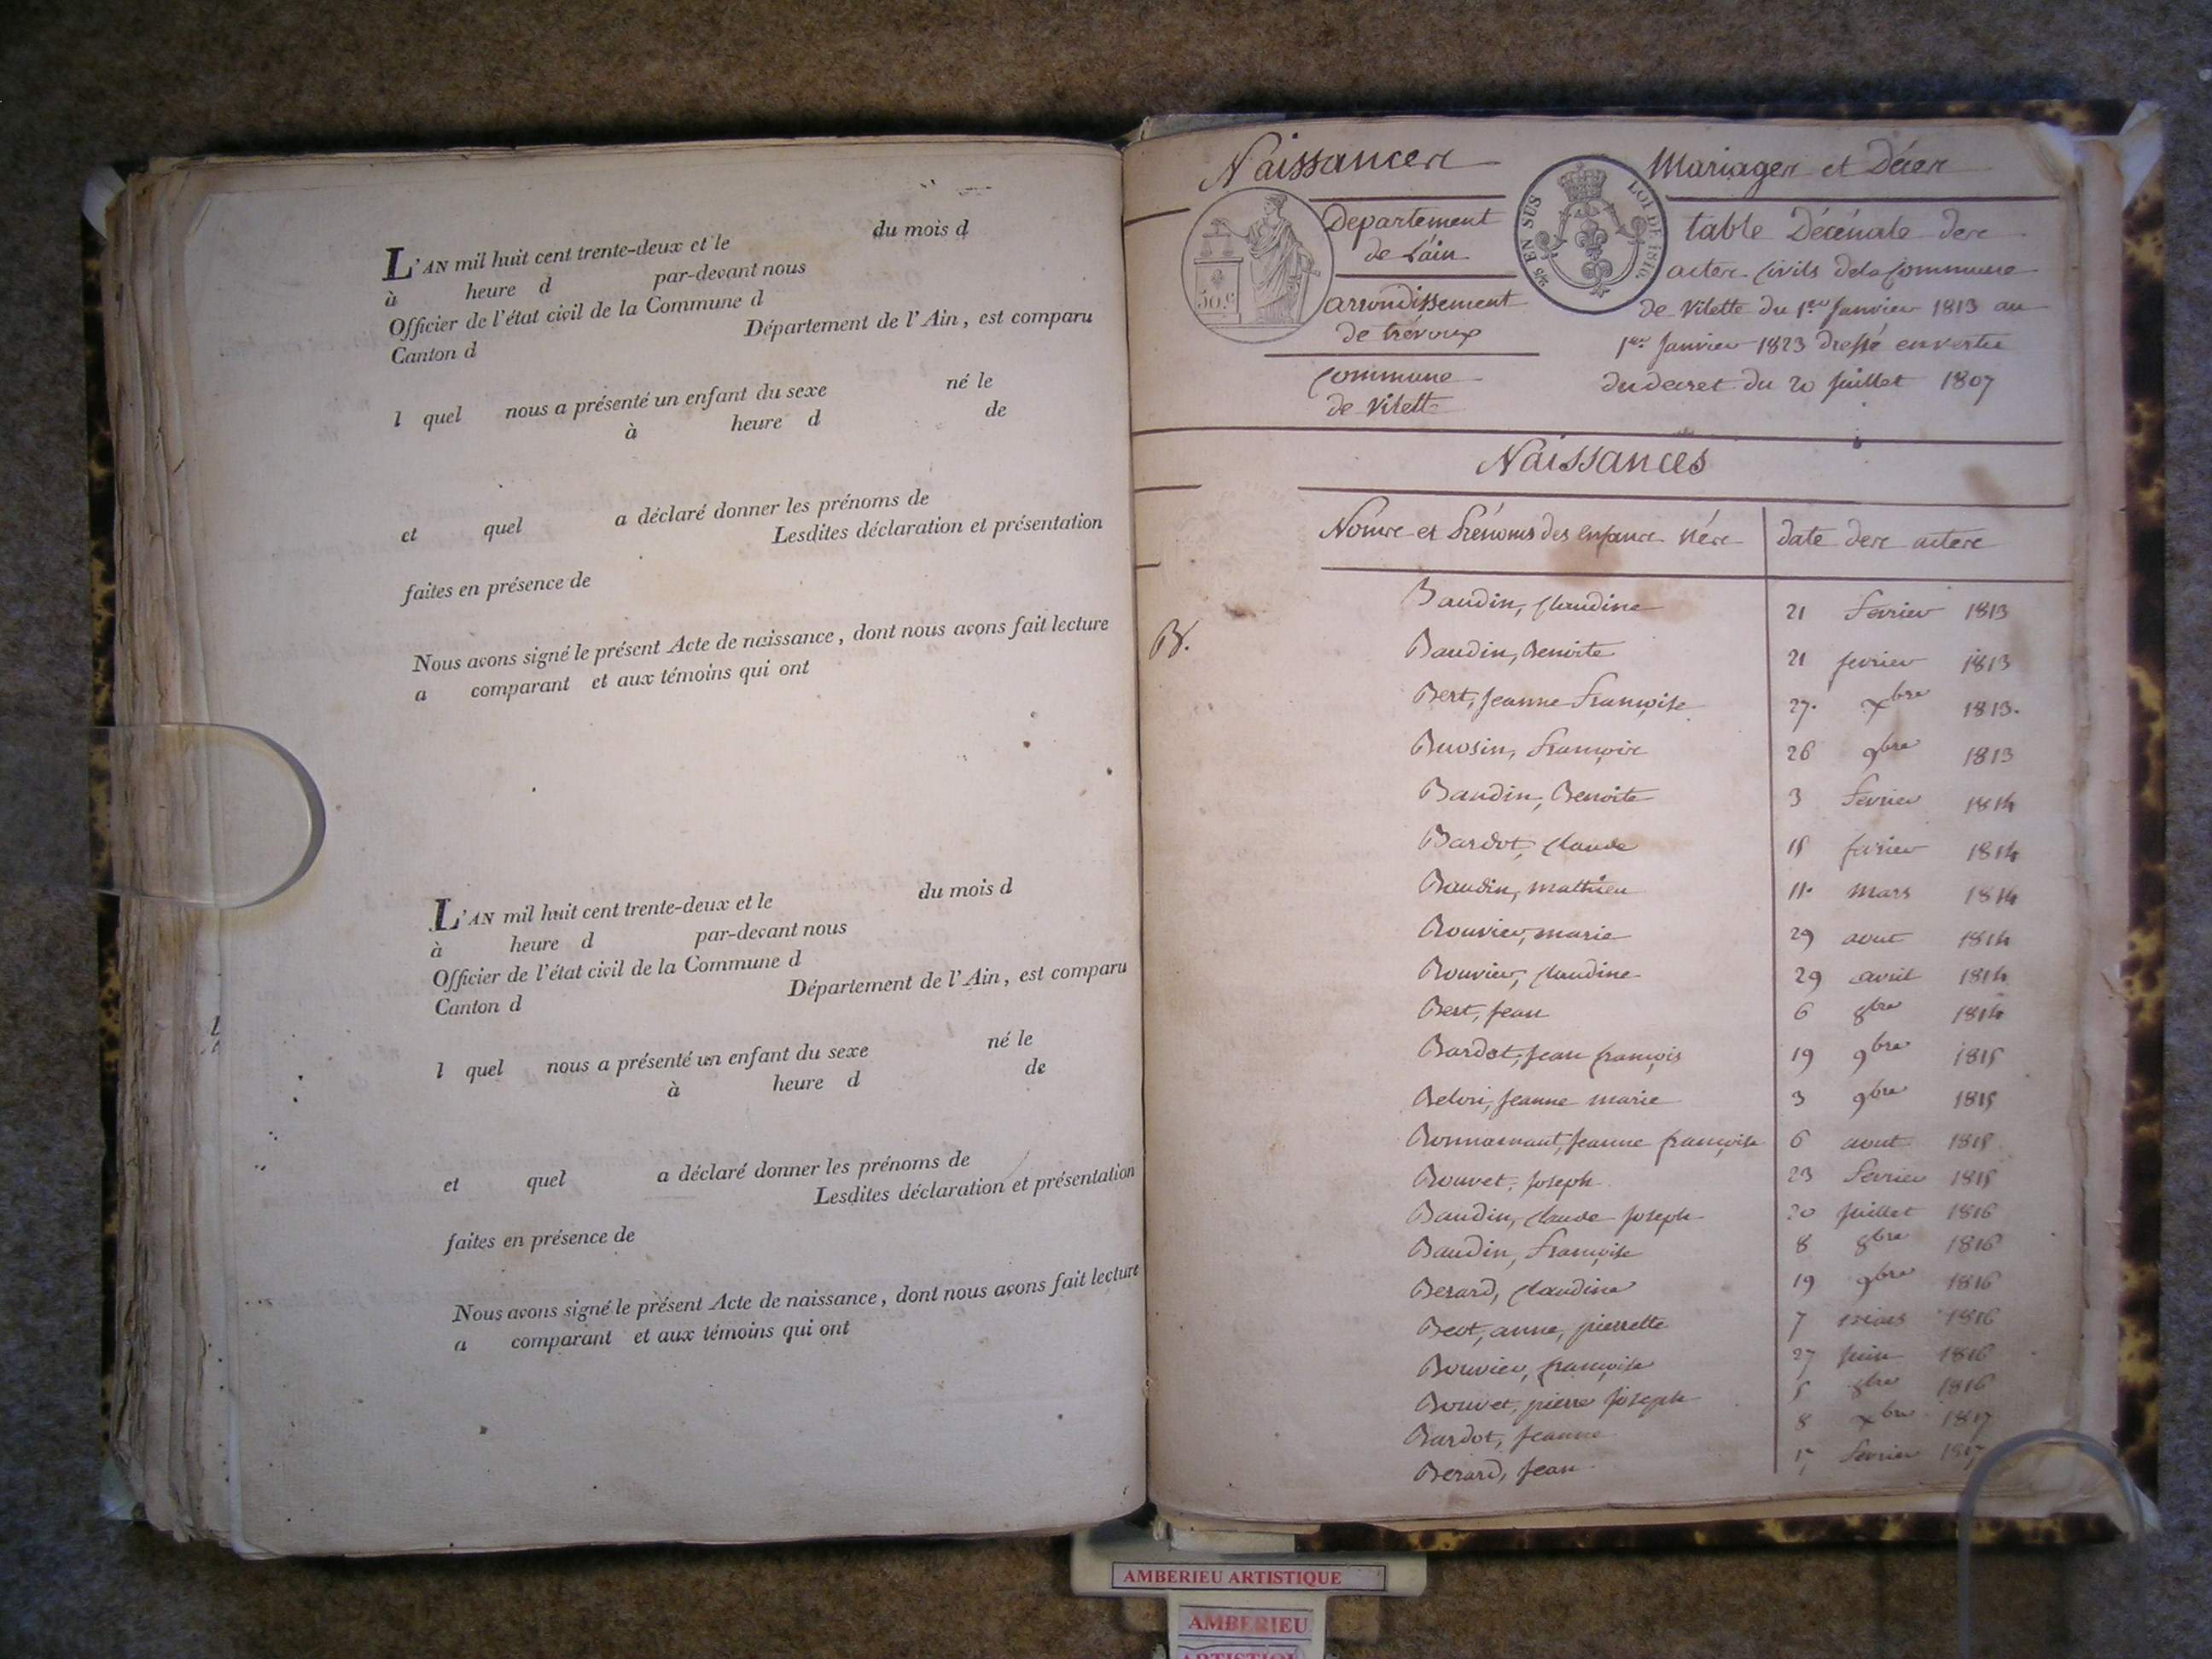 L'AN mil huit cent trente-deux et le du mois d
à heure d par-devant nous
Officier de l'état civil de la Commune d
Canton d Département de l'Ain, est comparu
l quel nous a présenté un enfant du sexe né le
à heure d de
et quel a déclaré donner les prénoms de
Lesdites déclaration et présentation
faites en présence de
Nous avons signé le présent Acte de naissance, dont nous avons fait lecture
a comparant et aux témoins qui ont
L'AN mil huit cent trente-deux et le du mois d
à heure d par-devant nous
Officier de l'état civil de la Commune d
Canton d Département de l'Ain, est comparu
l quel nous a présenté un enfant du sexe né le
à heure d de
et quel a déclaré donner les prénoms de
Lesdites déclaration et présentation
faites en présence de
Nous avons signé le présent Acte de naissance, dont nous avons fait lecture
a comparant et aux témoins qui ont
Naissances Mariages et Décès
Departement
de L'ain
arrondissement
de trévoux
commune
de Vilette
50 c
EN SUS LOI DE 1816.
table Décénale des
actes civils de la commune
de Vilette du 1er Janvier 1813 au
1er Janvier 1823 dressé en vertu
du decret du 20 Juillet 1807
Naissances
Noms et Prénoms des enfans nés date des actes
B.
Baudin, Claudine 21 fevrier 1813
Baudin, Benoite 21 fevrier 1813
Bert, Jeanne Françoise 27. Xbre 1813.
Buosin, François 26 9bre 1813
Baudin, Benoite 3 fevrier 1814
Bardot, Claude 15 fevrier 1814
Baudin, mathieu 11. mars 1814
Bouvier, marie 29 aout 1814
Bouvier, Claudine 29 avril 1814
Bert, Jean 6 8bre 1814
Bardot, Jean françois 19 9bre 1815
Jeanne marie 3 9bre 1815
Jeanne françoise 6 aout 1815
Bouvet, Joseph 23 fevrier 1815
Baudin, Claude Joseph 20 Juillet 1816
Baudin, Françoise 8 8bre 1816
Berard, Claudine 19 9bre 1816
Bert, anne, pierrette 7 mars 1816
Bouvier, françoise 27 Juin 1816
Bouvet, pierre Joseph 5 8bre 1816
Bardot, Jeanne 8 Xbre 1817
Berard, Jean fevrier 1817
AMBERIEU ARTISTIQUE
AMBERIEU
ARTISTIQU